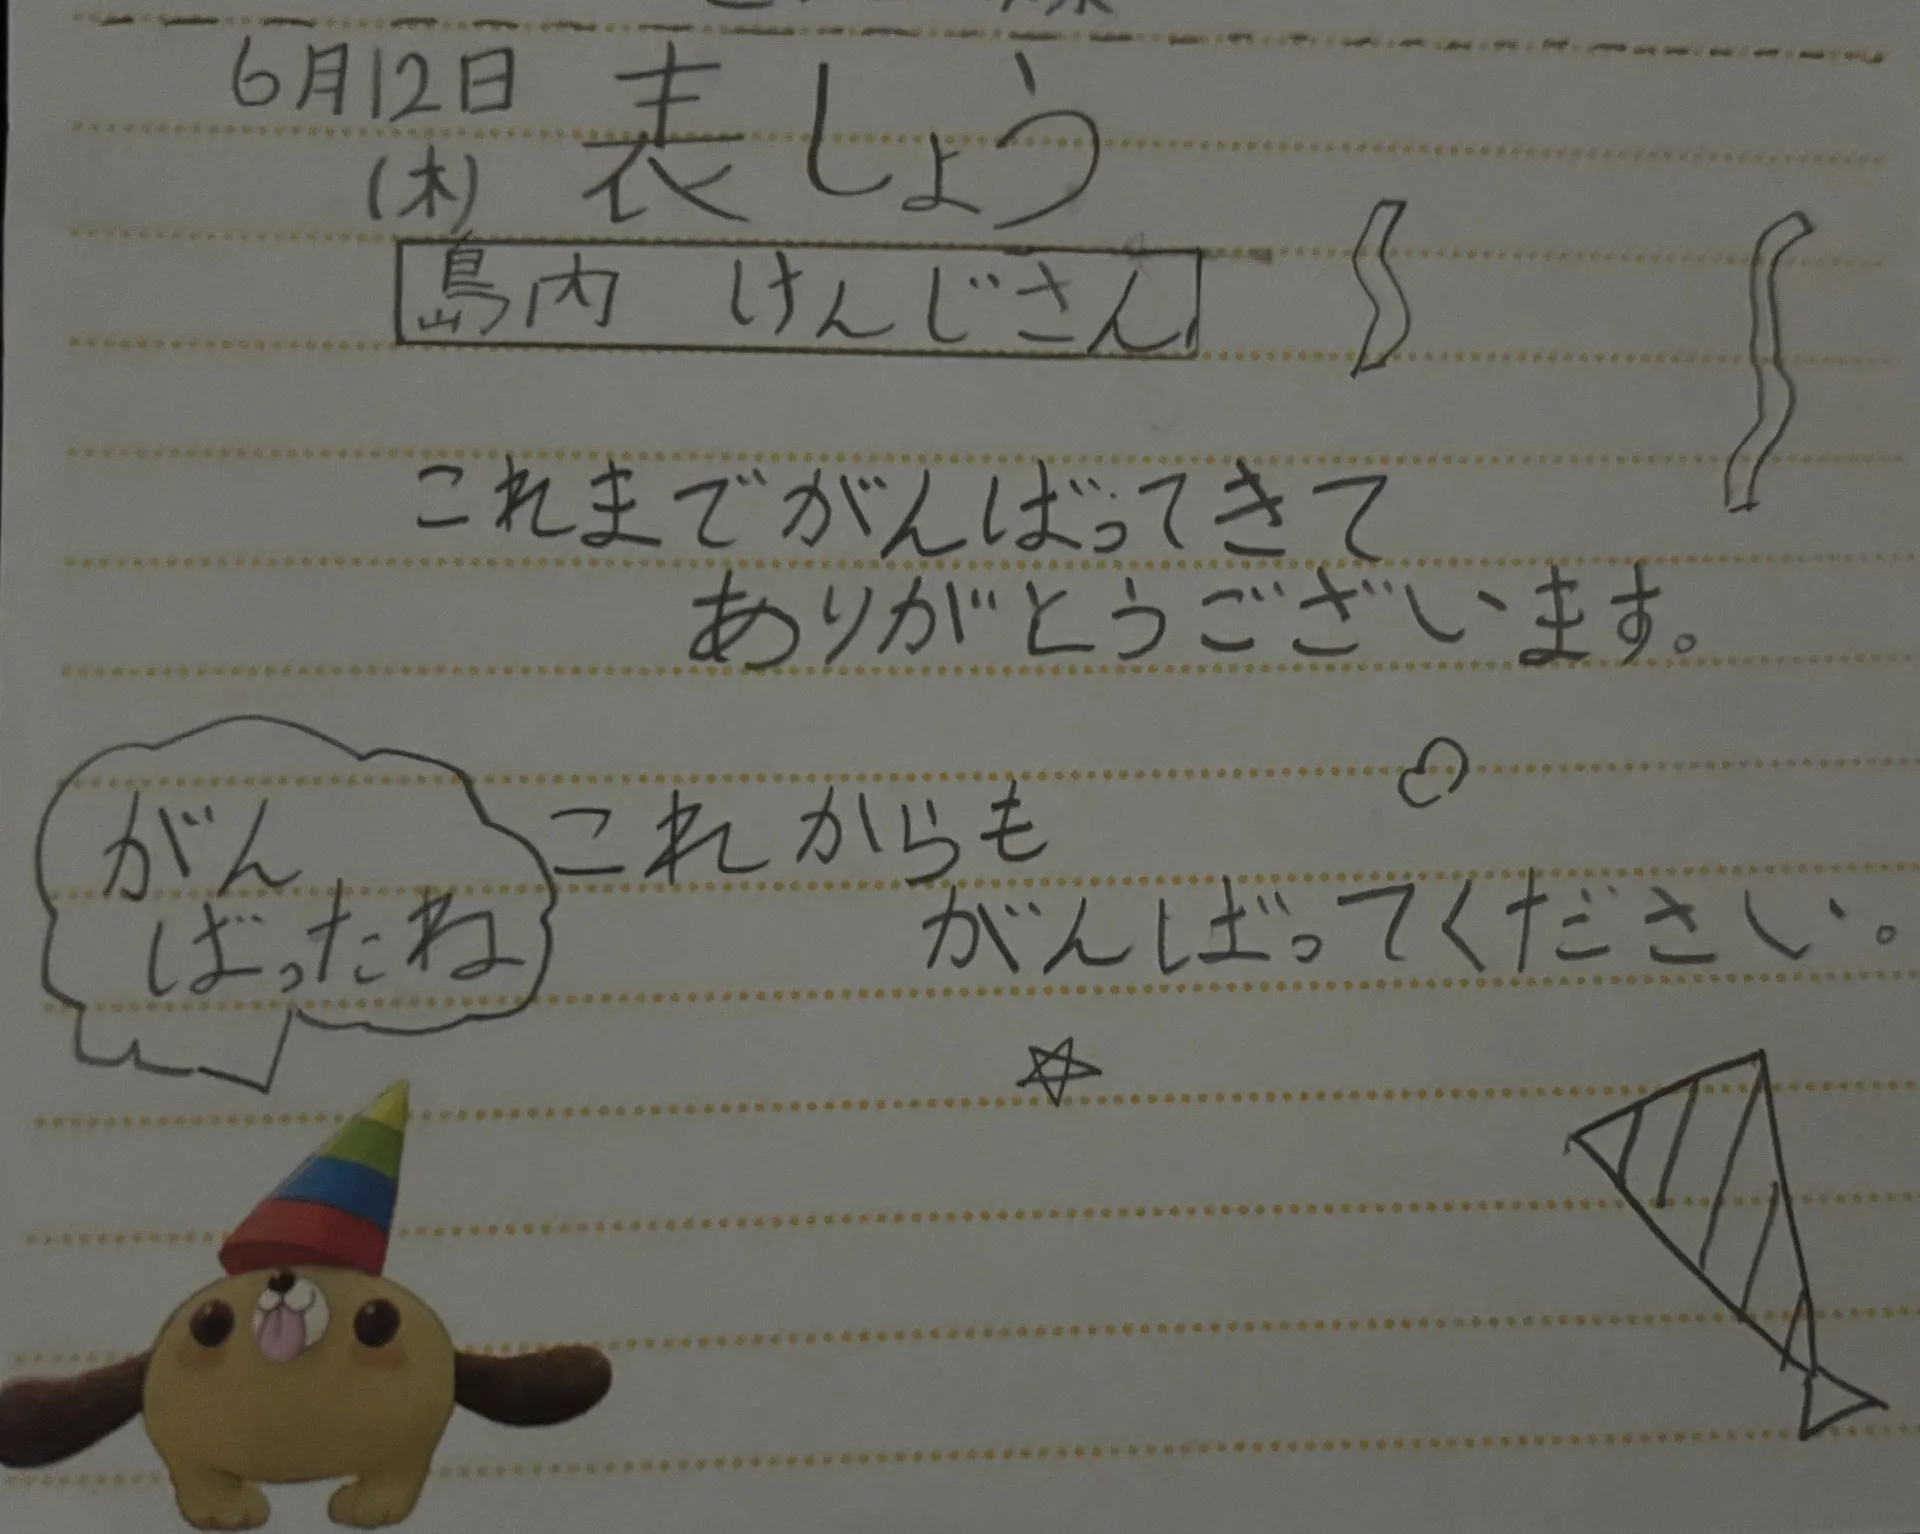 6月12日 表しょう
(木)
島内 けんじさん
これまでがんばってきて
ありがとうございます。
がん
ばったね
これからも
がんばってください。